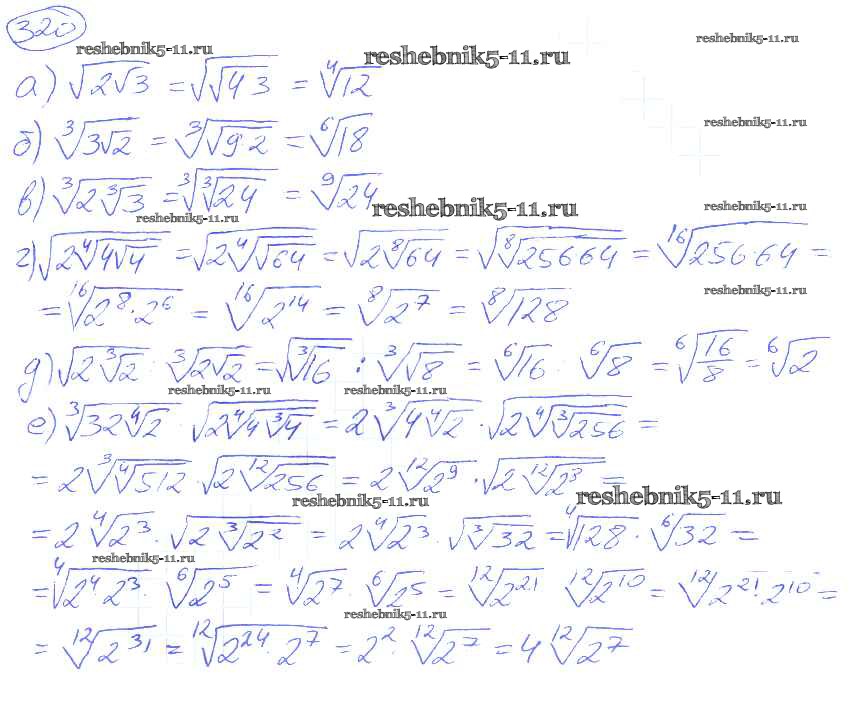 320
reshebnik5-11.ru
reshebnik5-11.ru
reshebnik5-11.ru
а) √(2√3) = √(√(4·3)) = ⁴√12
reshebnik5-11.ru
б) ³√(3√2) = ³√(√(9·2)) = ⁶√18
в) ³√(2 ³√3) = ³√(³√24) = ⁹√24
reshebnik5-11.ru
reshebnik5-11.ru
reshebnik5-11.ru
г) √(2 ⁴√(4√4)) = √(2 ⁴√(√64)) = √(2 ⁸√64) = √(⁸√(256·64)) = ¹⁶√(256·64) =
reshebnik5-11.ru
= ¹⁶√(2⁸·2⁶) = ¹⁶√(2¹⁴) = ⁸√(2⁷) = ⁸√128
д) √(2 ³√2) : ³√(2√2) = √(³√16) : ³√(√8) = ⁶√16 : ⁶√8 = ⁶√(16/8) = ⁶√2
reshebnik5-11.ru
reshebnik5-11.ru
е) ³√(32 ⁴√2) · √(2 ⁴√(4 ³√4)) = 2 ³√(4 ⁴√2) · √(2 ⁴√(³√256)) =
= 2 ³√(⁴√512) · √(2 ¹²√256) = 2 ¹²√(2⁹) · √(2 ¹²√(2³)) =
reshebnik5-11.ru
reshebnik5-11.ru
= 2 ⁴√(2³) · √(2 ³√(2²)) = 2 ⁴√(2³) · √(³√32) = ⁴√128 · ⁶√32 =
reshebnik5-11.ru
= ⁴√(2⁴·2³) · ⁶√(2⁵) = ⁴√(2⁷) · ⁶√(2⁵) = ¹²√(2²¹) ¹²√(2¹⁰) = ¹²√(2²¹·2¹⁰) =
reshebnik5-11.ru
= ¹²√(2³¹) = ¹²√(2²⁴·2⁷) = 2² · ¹²√(2⁷) = 4 ¹²√(2⁷)